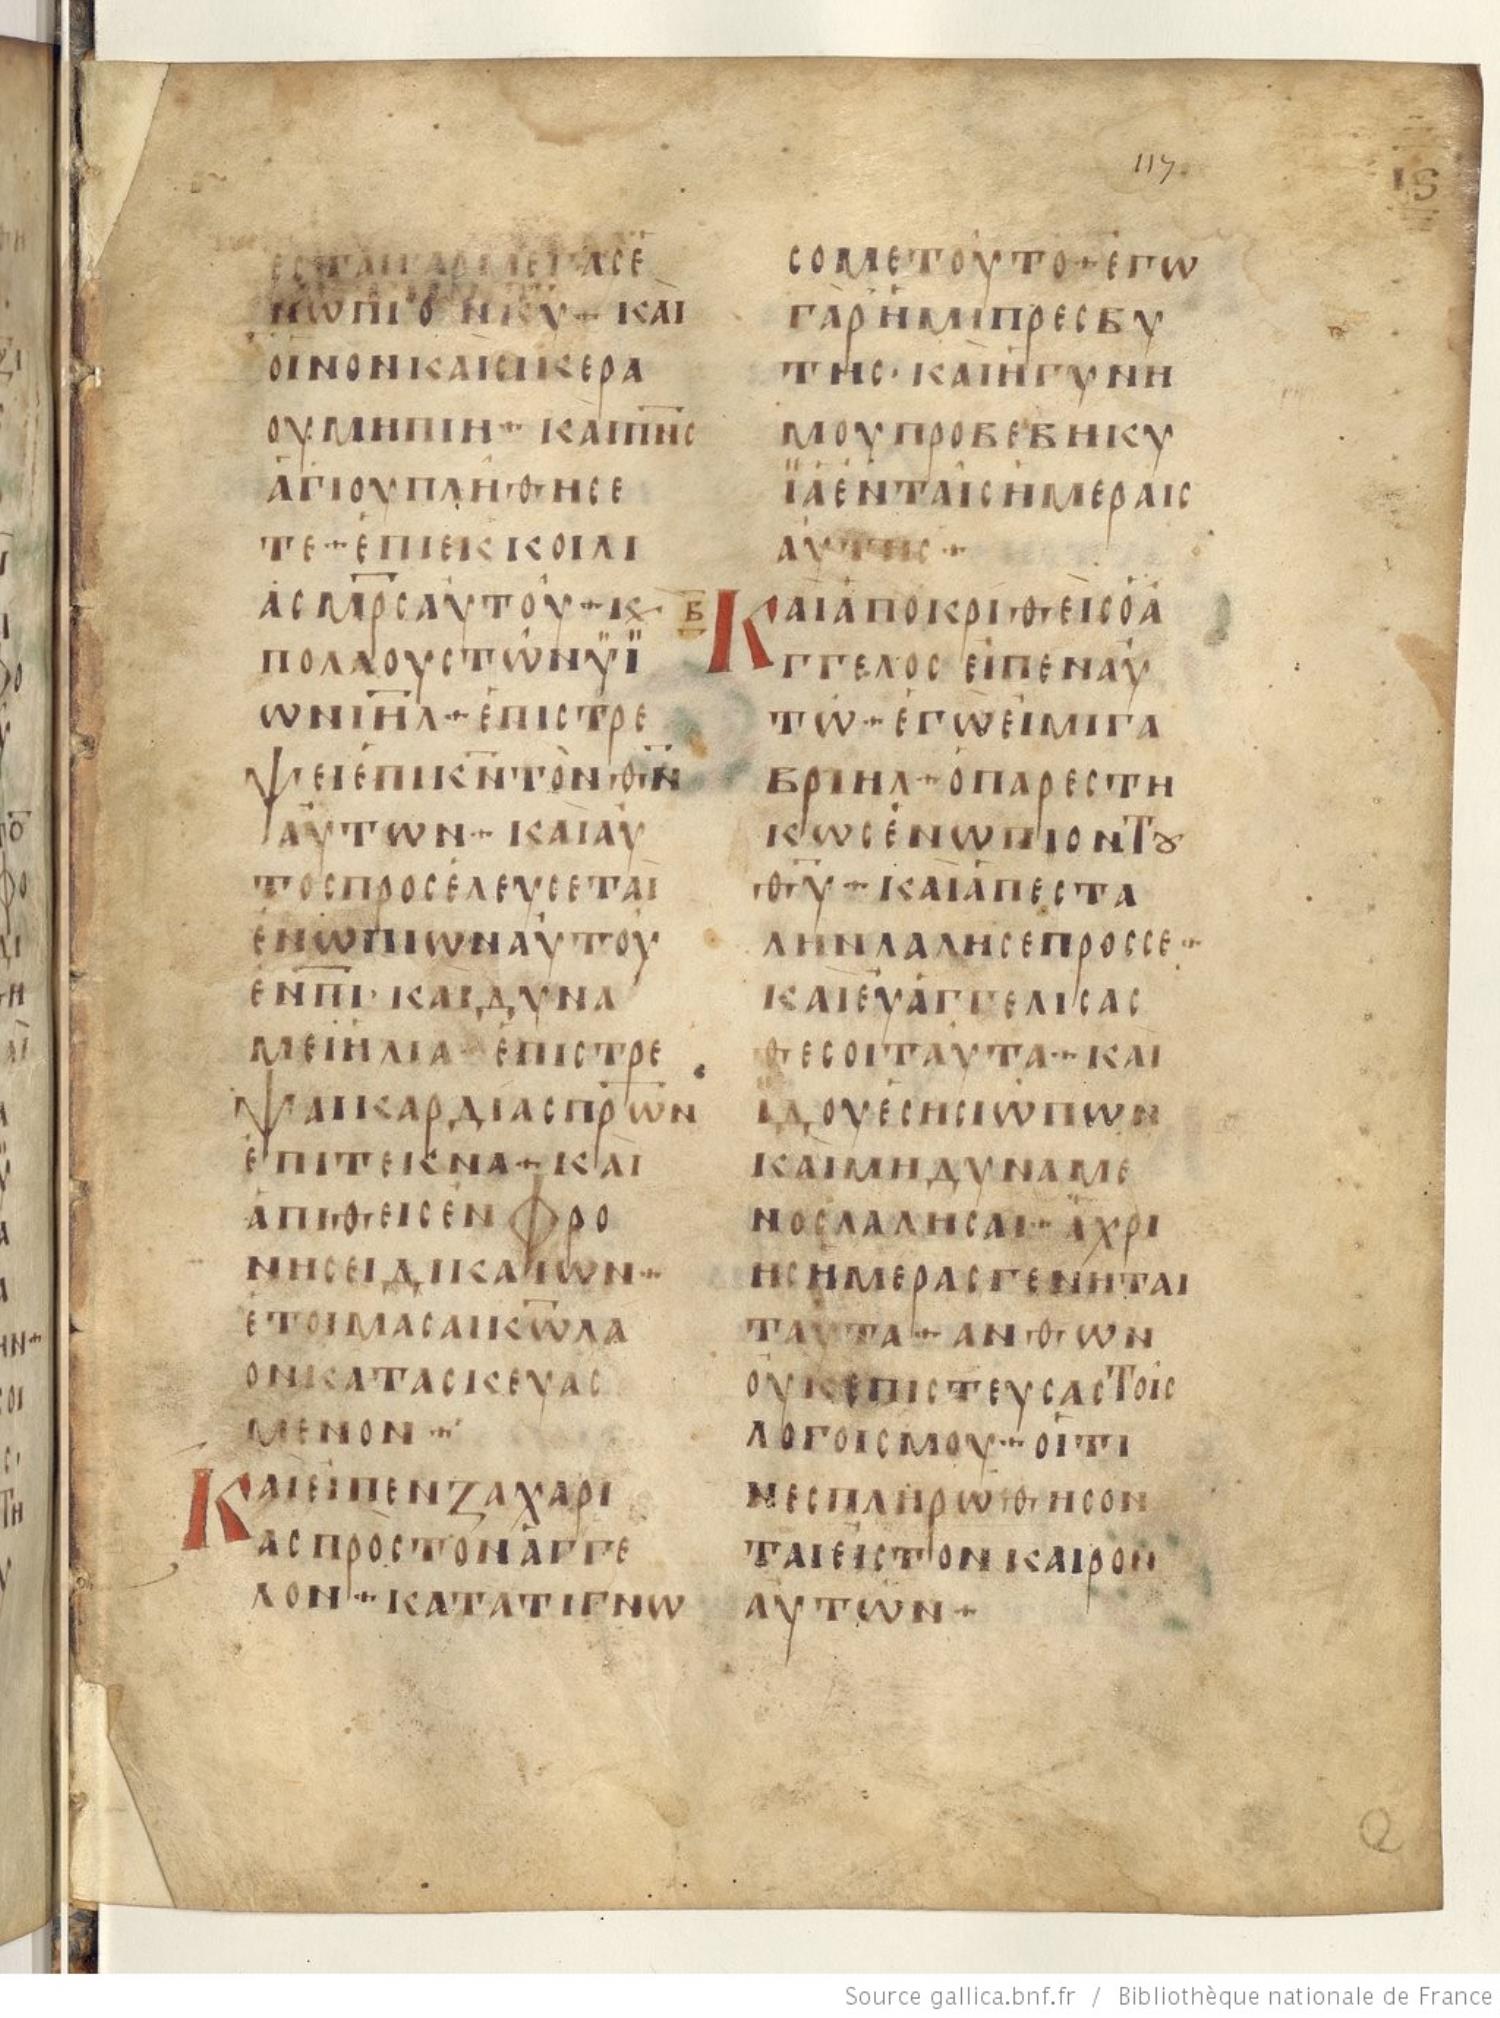 117
ΕСΤΑΙΓΑΡΜΕΓΑСΕ
ΝΩΠΙΟΝΚΥ + ΚΑΙ
ΟΙΝΟΝΚΑΙСΙΚΕΡΑ
ΟΥΜΗΠΙΗ + ΚΑΙΠΝС
ΑΓΙΟΥΠΛΗΘΗСΕ
ΤΕ + ΕΠΙΕΚΚΟΙΛΙ
ΑСΜΡСΑΥΤΟΥ + Κ
ΠΟΛΛΟΥСΤΩΝΫΪ
ΩΝΙΗΛ + ΕΠΙСΤΡΕ
ΨΕΙΕΠΙΚΝΤΟΝΘΝ
ΑΥΤΩΝ + ΚΑΙΑΥ
ΤΟСΠΡΟСΕΛΕΥСΕΤΑΙ
ΕΝΩΠΙΩΝΑΥΤΟΥ
ΕΝΠΙ · ΚΑΙΔΥΝΑ
ΜΕΙΗΛΙΑ ΕΠΙСΤΡΕ
ΨΑΙΚΑΡΔΙΑСΠΡΩΝ
ΕΠΙΤΕΚΝΑ + ΚΑΙ
ΑΠΙΘΕΙСΕΝΦΡΟ
ΝΗСΕΙΔΙΚΑΙΩΝ +
ΕΤΟΙΜΑСΑΙΚΩΛΑ
ΟΝΚΑΤΑСΚΕΥΑС
ΜΕΝΟΝ +
ΚΑΙΕΙΠΕΝΖΑΧΑΡΙ
ΑСΠΡΟСΤΟΝΑΓΓΕ
ΛΟΝ + ΚΑΤΑΤΙΓΝΩ
СΟΜΕΤΟΥΤΟ + ΕΓΩ
ΓΑΡΗΜΙΠΡΕСΒΥ
ΤΗС · ΚΑΙΗΓΥΝΗ
ΜΟΥΠΡΟΒΕΒΗΚΥ
ΪΑΕΝΤΑΙСΗΜΕΡΑΙС
ΑΥΤΗС +
Β ΚΑΙΑΠΟΚΡΙΘΕΙСΟΑ
ΓΓΕΛΟС ΕΙΠΕΝΑΥ
ΤΩ + ΕΓΩΕΙΜΙΓΑ
ΒΡΙΗΛ + ΟΠΑΡΕСΤΗ
ΚΩСΕΝΩΠΙΟΝΤȢ
ΘΥ + ΚΑΙΑΠΕСΤΑ
ΛΗΝΛΑΛΗСΕΠΡΟССΕ +
ΚΑΙΕΥΑΓΓΕΛΙСΑС
ΘΕСΟΙΤΑΥΤΑ + ΚΑΙ
ΪΔΟΥΕСΗСΙΩΠΩΝ
ΚΑΙΜΗΔΥΝΑΜΕ
ΝΟСΛΑΛΗСΑΙ + ΑΧΡΙ
ΗСΗΜΕΡΑСΓΕΝΗΤΑΙ
ΤΑΥΤΑ + ΑΝΘΩΝ
ΟΥΚΕΠΙСΤΕΥСΑСΤΟΙС
ΛΟΓΟΙСΜΟΥ + ΟΙΤΙ
ΝΕСΠΛΗΡΩΘΗСΟΝ
ΤΑΙΕΙСΤΟΝΚΑΙΡΟΝ
ΑΥΤΩΝ +
Source gallica.bnf.fr / Bibliothèque nationale de France